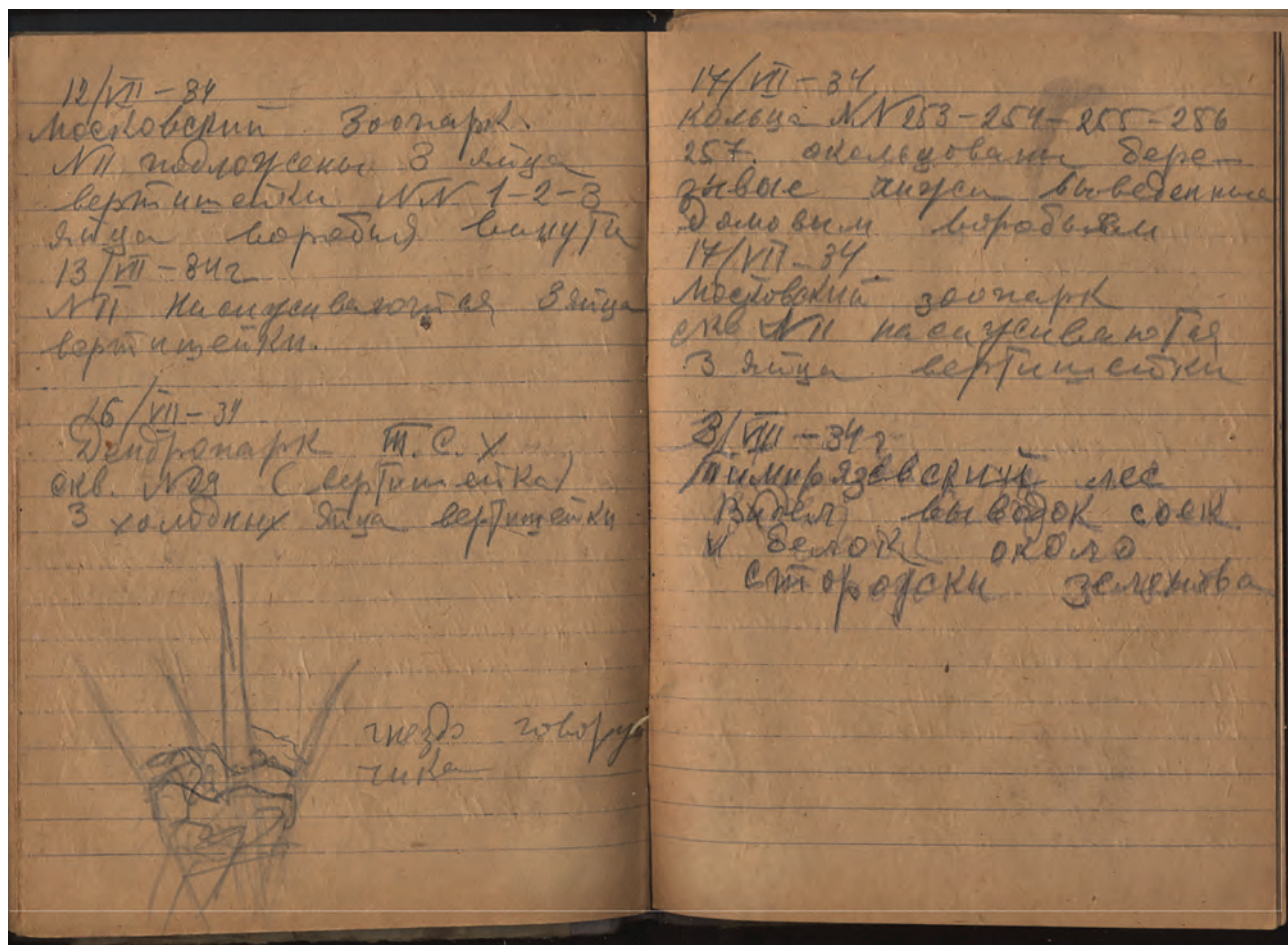 12/VII – 34
Московский Зоопарк.
N11 подложены 3 яйца
вертишейки NN 1-2-3
яйца воробья вынуты
13/VII – 34г
N11 Насиживаются 3 яйца
вертишейки.
16/VII – 34
Дендропарк Т.С.Х
скв. N29 (вертишейка)
3 холодных яйца вертишейки
гнездо говору
чика
17/VII – 34
Кольца NN 253-254-255-256
257. окольцованы бере-
зывые чижи выведенные
Домовым воробьем
17/VII – 34
Московский зоопарк
скв N11 насиживаются
3 яйца вертишейки
3/VIII – 34г
Тимирязевский лес
Видел выводок соек
и белок около
сторожки